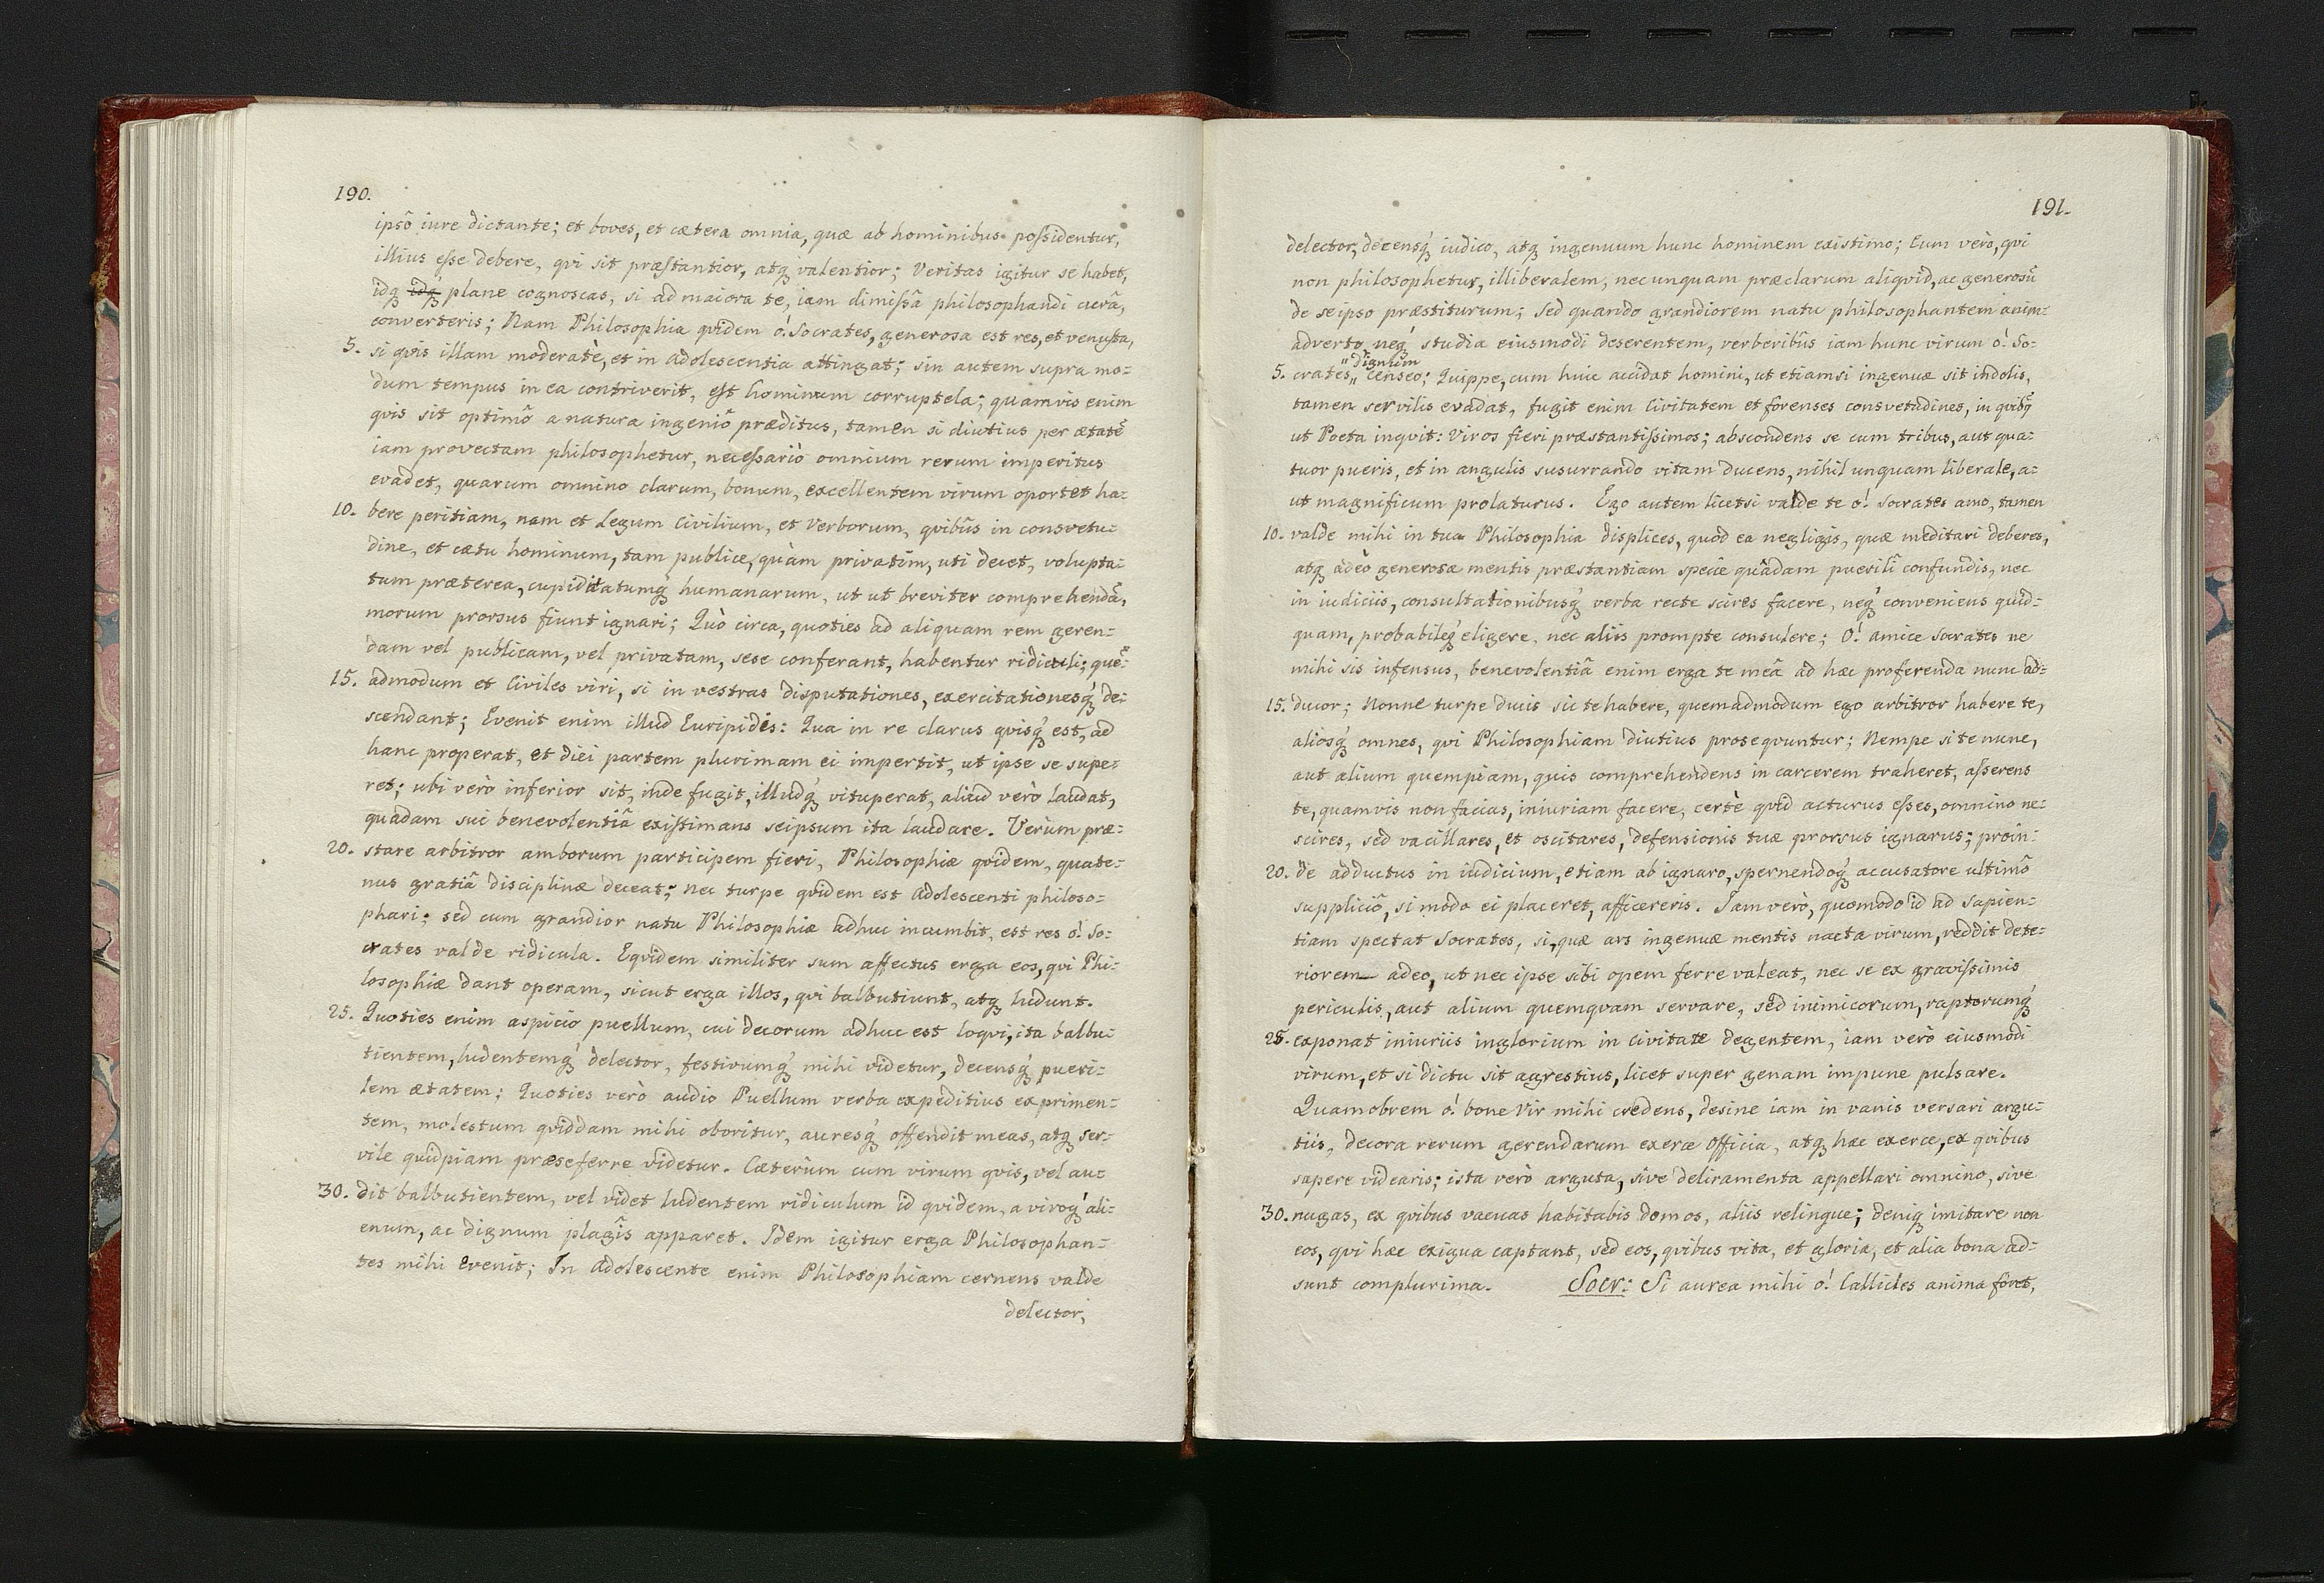 190.
ipsô iure dictante; et boves, et cætera omnia, quæ ab hominibus possidentur,
illius esse debere, qvi sit præstantior, atq valentior; Veritas igitur se habet,
idq idq plane cognoscas, si ad maiora te, iam dimissâ philosophandi curâ,
converteris; Nam Philosophia qvidem ô! Socrates, generosa est res, et venusta,
5. si qvis illam moderatè, et in adolescentia attingat; sin autem supra mo=
dum tempus in ea contriverit, est hominum corruptela; quamvis enim
qvis sit optimô a natura ingeniô præditus, tamen si diutius per ætatē
iam provectam philosophetur, necessariò omnium rerum imperitus
evadet, quarum omnino clarum, bonum, excellentem virum oportet ha=
10. bere peritiam, nam et Legum Civilium, et Verborum, qvibûs in consvetu=
dine, et cætu hominum, tam publice, quàm privatim, uti decet, volupta=
tum præterea, cupiditatumq́ humanarum, ut ut breviter comprehendā,
morum prorsus fiunt ignari; Quò circa, quoties ad aliquam rem geren=
dam vel publicam, vel privatam, sese conferant, habentur ridiculi; quē=
15. admodum et Civiles viri, si in vestras disputationes, exercitationesq́ de=
scendant; Evenit enim illud Euripidis: Qua in re clarus qvisq́ est, ad
hanc properat, et diei partem plurimam ei impertit, ut ipse se supe=
ret; ubi verò inferior sit, inde fugit, illudq́ vituperat, aliud verò laudat,
quâdam sui benevolentiâ existimans seipsum ita laudare. Verùm præ=
20. stare arbitror amborum participem fieri, Philosophiæ qvidem, quate=
nus gratiâ disciplinæ deceat; nec turpe qvidem est adolescenti philoso=
phari; sed cum grandior natu Philosophiæ adhuc incumbit, est res ô! So=
crates valde ridicula. Eqvidem similiter sum affectus erga eos, qvi Phi=
losophiæ dant operam, sicut erga illos, qvi balbutiunt, atq ludunt.
25. Quoties enim aspicio puellum, cui decorum adhuc est loqvi, ita balbu=
tientem, ludentemq́ delector, festivumq́ mihi videtur, decensq́ pueri=
lem ætatem; Quoties verò audio Puellum verba expeditius exprimen=
tem, molestum qviddam mihi oboritur, auresq́ offendit meas, atq ser=
vile quidpiam præseferre videtur. Cæterùm cum virum qvis, vel au=
30. dit balbutientem, vel videt ludentem ridiculum id qvidem, a viroq́ ali=
enum, ac dignum plagîs apparet. Idem igitur erga Philosophan=
tes mihi Evenit; In adolescente enim Philosophiam cernens valde
delector,
191.
delector, decensq́ iudico, atq ingenuum hunc hominem existimo; Eum verò, qvi
non philosophetur, illiberalem, nec unquam præclarum aliqvid, ac generosū
de seipso præstiturum; Sed quando grandiorem natu philosophantem anim=
adverto, neq́ studia eiusmodi deserentem, verberibûs iam hunc virum ô! So=
"dignum
5. crates" censeo; Quippe, cum huic accidat homini, ut etiamsi ingenuæ sit indolis,
tamen servilis evadat, fugit enim Civitatem et forenses consvetudines, in qvibq́
ut Poeta inqvit: Viros fieri præstantissimos; abscondens se cum tribus, aut qua=
tuor pueris, et in angulis susurrando vitam ducens, nihil unquam liberale, a=
ut magnificum prolaturus. Ego autem licetsi valde te ô! Socrates amo, tamen
10. valde mihi in tua Philosophia displices, quòd ea negligis, quæ meditari deberes,
atq àdeò generosæ mentis præstantiam specie quâdam puerili confundis, nec
in iudiciis, consultationibusq́ verba recte scires facere, neq́ conveniens quid=
quam, probabileq́ eligere, nec aliis prompte consulere; O! amice Socrates ne
mihi sis infensus, benevolentiâ enim erga te meâ ad hæc proferenda nunc ad=
15. ducor; Nonne turpe ducis sic te habere, quemadmodum ego arbitror habere te,
aliosq́ omnes, qvi Philosophiam diutius proseqvuntur; Nempe si te nunc,
aut alium quempiam, quis comprehendens in carcerem traheret, asserens
te, quamvis non facias, iniuriam facere, certè qvid acturus esses, omnino ne=
scires, sed vacillares, et oscitares, defensionis tuæ prorsus ignarus; proin=
20. de adductus in iudicium, etiam ab ignaro, spernendoq́ accusatore ultimô
suppliciô, si modo ei placeret, afficereris. Iam verò, quomodo id ad sapien=
tiam spectat Socrates, si, quæ ars ingenuæ mentis nacta virum, reddit dete=
riorem — adeo, ut nec ipse sibi opem ferre valeat, nec se ex gravissimis
periculis, aut alium quemqvam servare, sed inimicorum, raptorumq́
25. exponat iniuriis inglorium in civitate degentem, iam verò eiusmodi
virum, et si dictu sit agrestius, licet super genam impune pulsare.
Quamobrem ô! bone Vir mihi credens, desine iam in vanis versari argu=
tiis, decora rerum gerendarum exerce Officia, atq hæc exerce, ex qvibus
sapere videaris; ista verò arguta, sive deliramenta appellari omnino, sive
30. nugas, ex qvibus vacuas habitabis domos, aliis relinque; deniq imitare non
eos, qvi hæc exigua captant, sed eos, qvibus vita, et gloria, et alia bona ad=
sunt complurima. Socr: Si aurea mihi ô! Callicles anima foret,